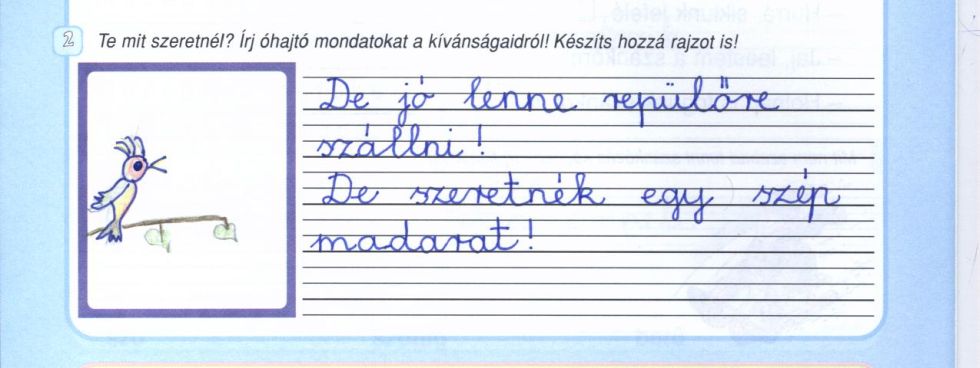 2 Te mit szeretnél? Írj óhajtó mondatokat a kívánságaidról! Készíts hozzá rajzot is!
De jó lenne repülőre
szállni!
De szeretnék egy szép
madarat!